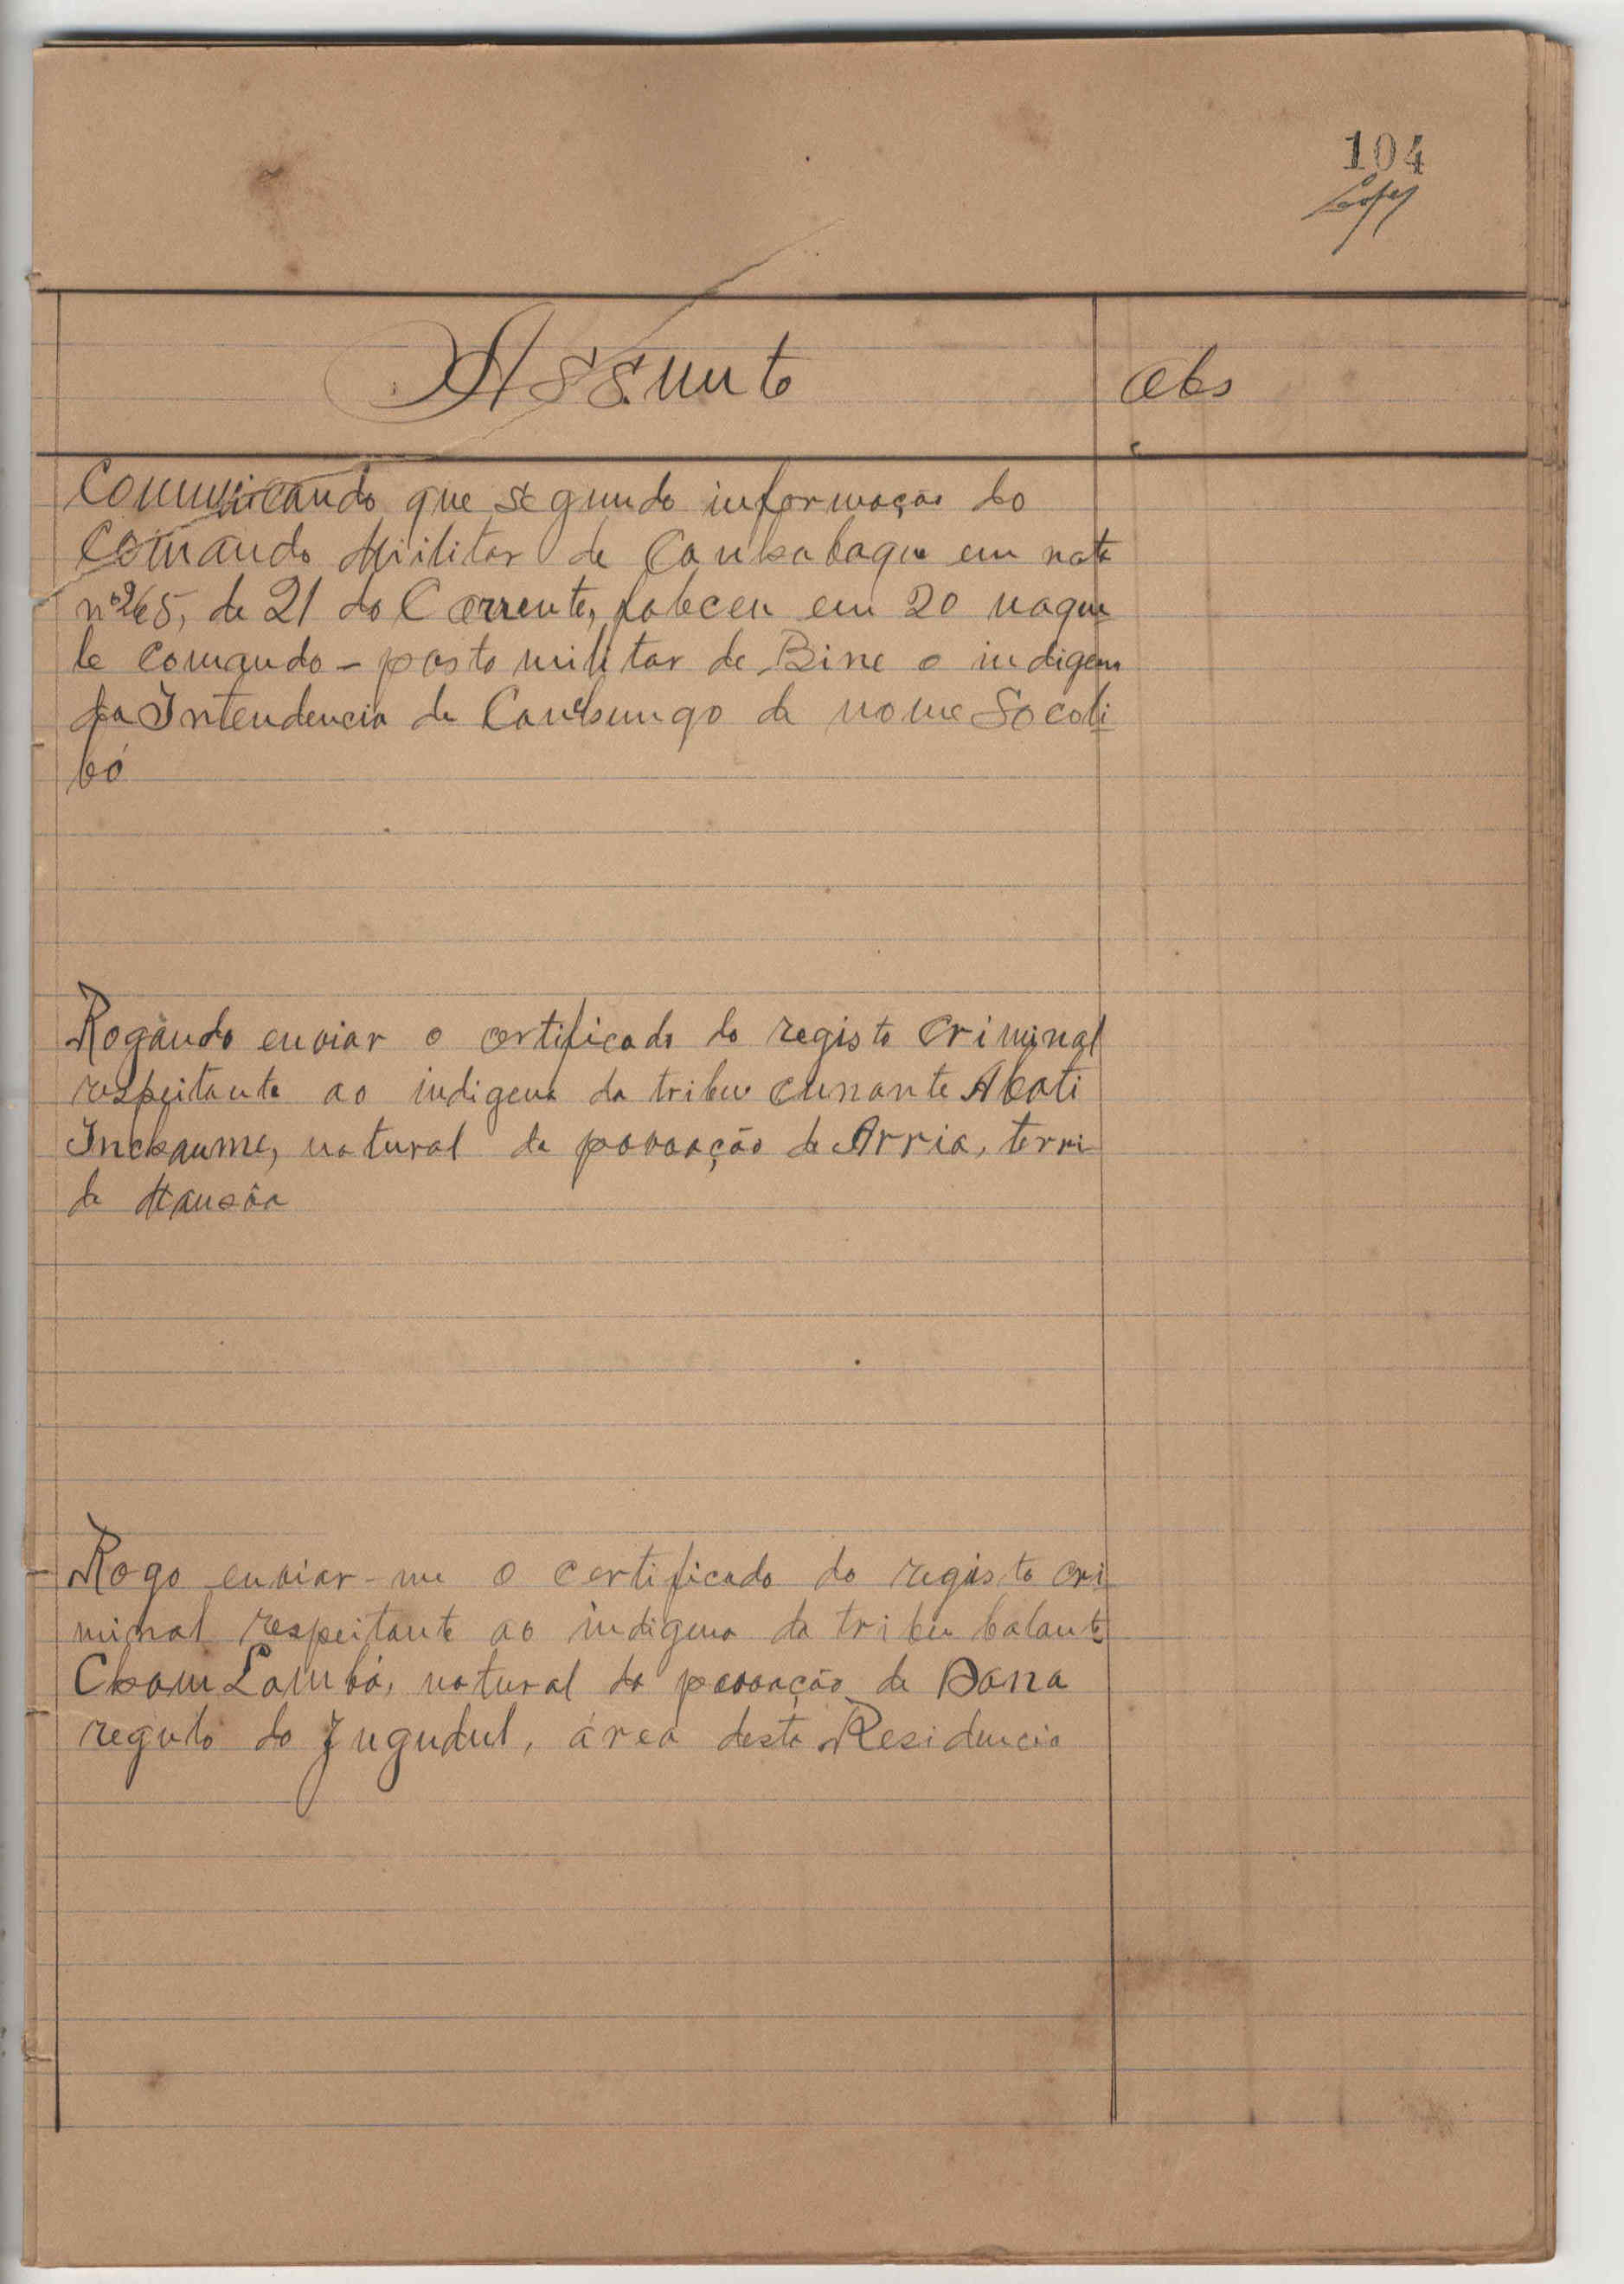 104
Lopes
Assunto
Obs
Communicando que segundo informação do
Comando Militar de Canhabaque em nota
nº 265, de 21 do Corrente, faleceu em 20 naque
le comando - posto militar de Bine o indigena
da Intendencia de Canchungo de nome Socoli
bó
Rogando enviar o certificado do registo Criminal
respeitante ao indigena da tribu cunante Abati
Inchaume, natural da povoação de Arria, terri
de Mansôa
Rogo enviar-me o certificado do registo cri
minal respeitante ao indigena da tribu balante
Cham Lambá, natural da povoação de Dana
regulo do Jugudul, área desta Residencia